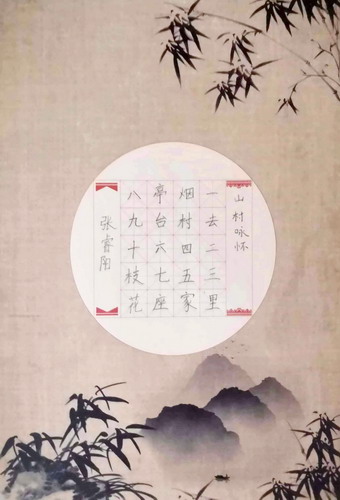 山村咏怀
一去二三里
烟村四五家
亭台六七座
八九十枝花
张睿阳